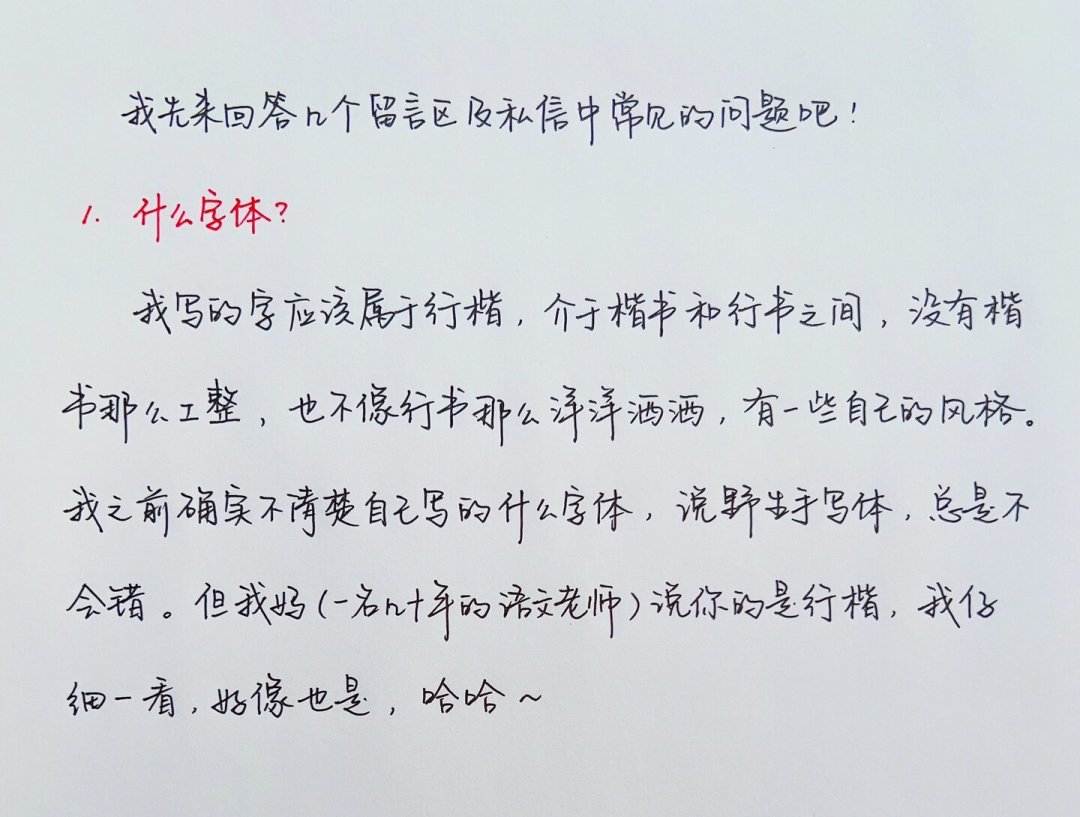 我先来回答几个留言区及私信中常见的问题吧！
1. 什么字体？
我写的字应该属于行楷，介于楷书和行书之间，没有楷
书那么工整，也不像行书那么洋洋洒洒，有一些自己的风格。
我之前确实不清楚自己写的什么字体，说野生手写体，总是不
会错。但我妈（一名几十年的语文老师）说你的是行楷，我仔
细一看，好像也是，哈哈～